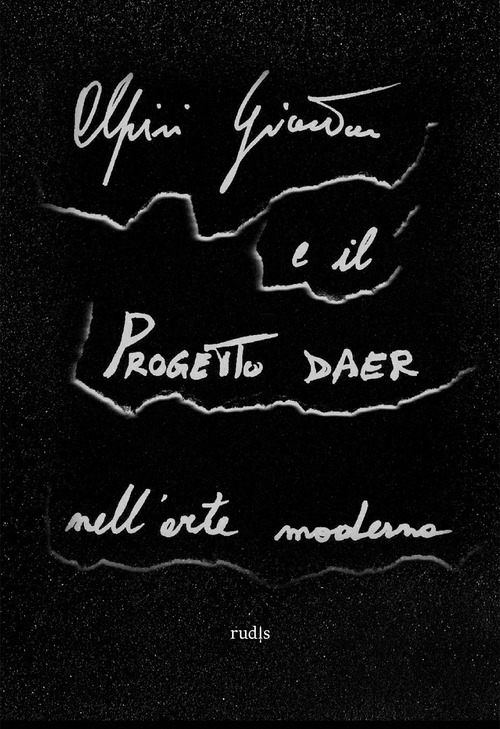 Alpini Giordan
e il
PROGETTO DAER
nell'arte moderna
rudis